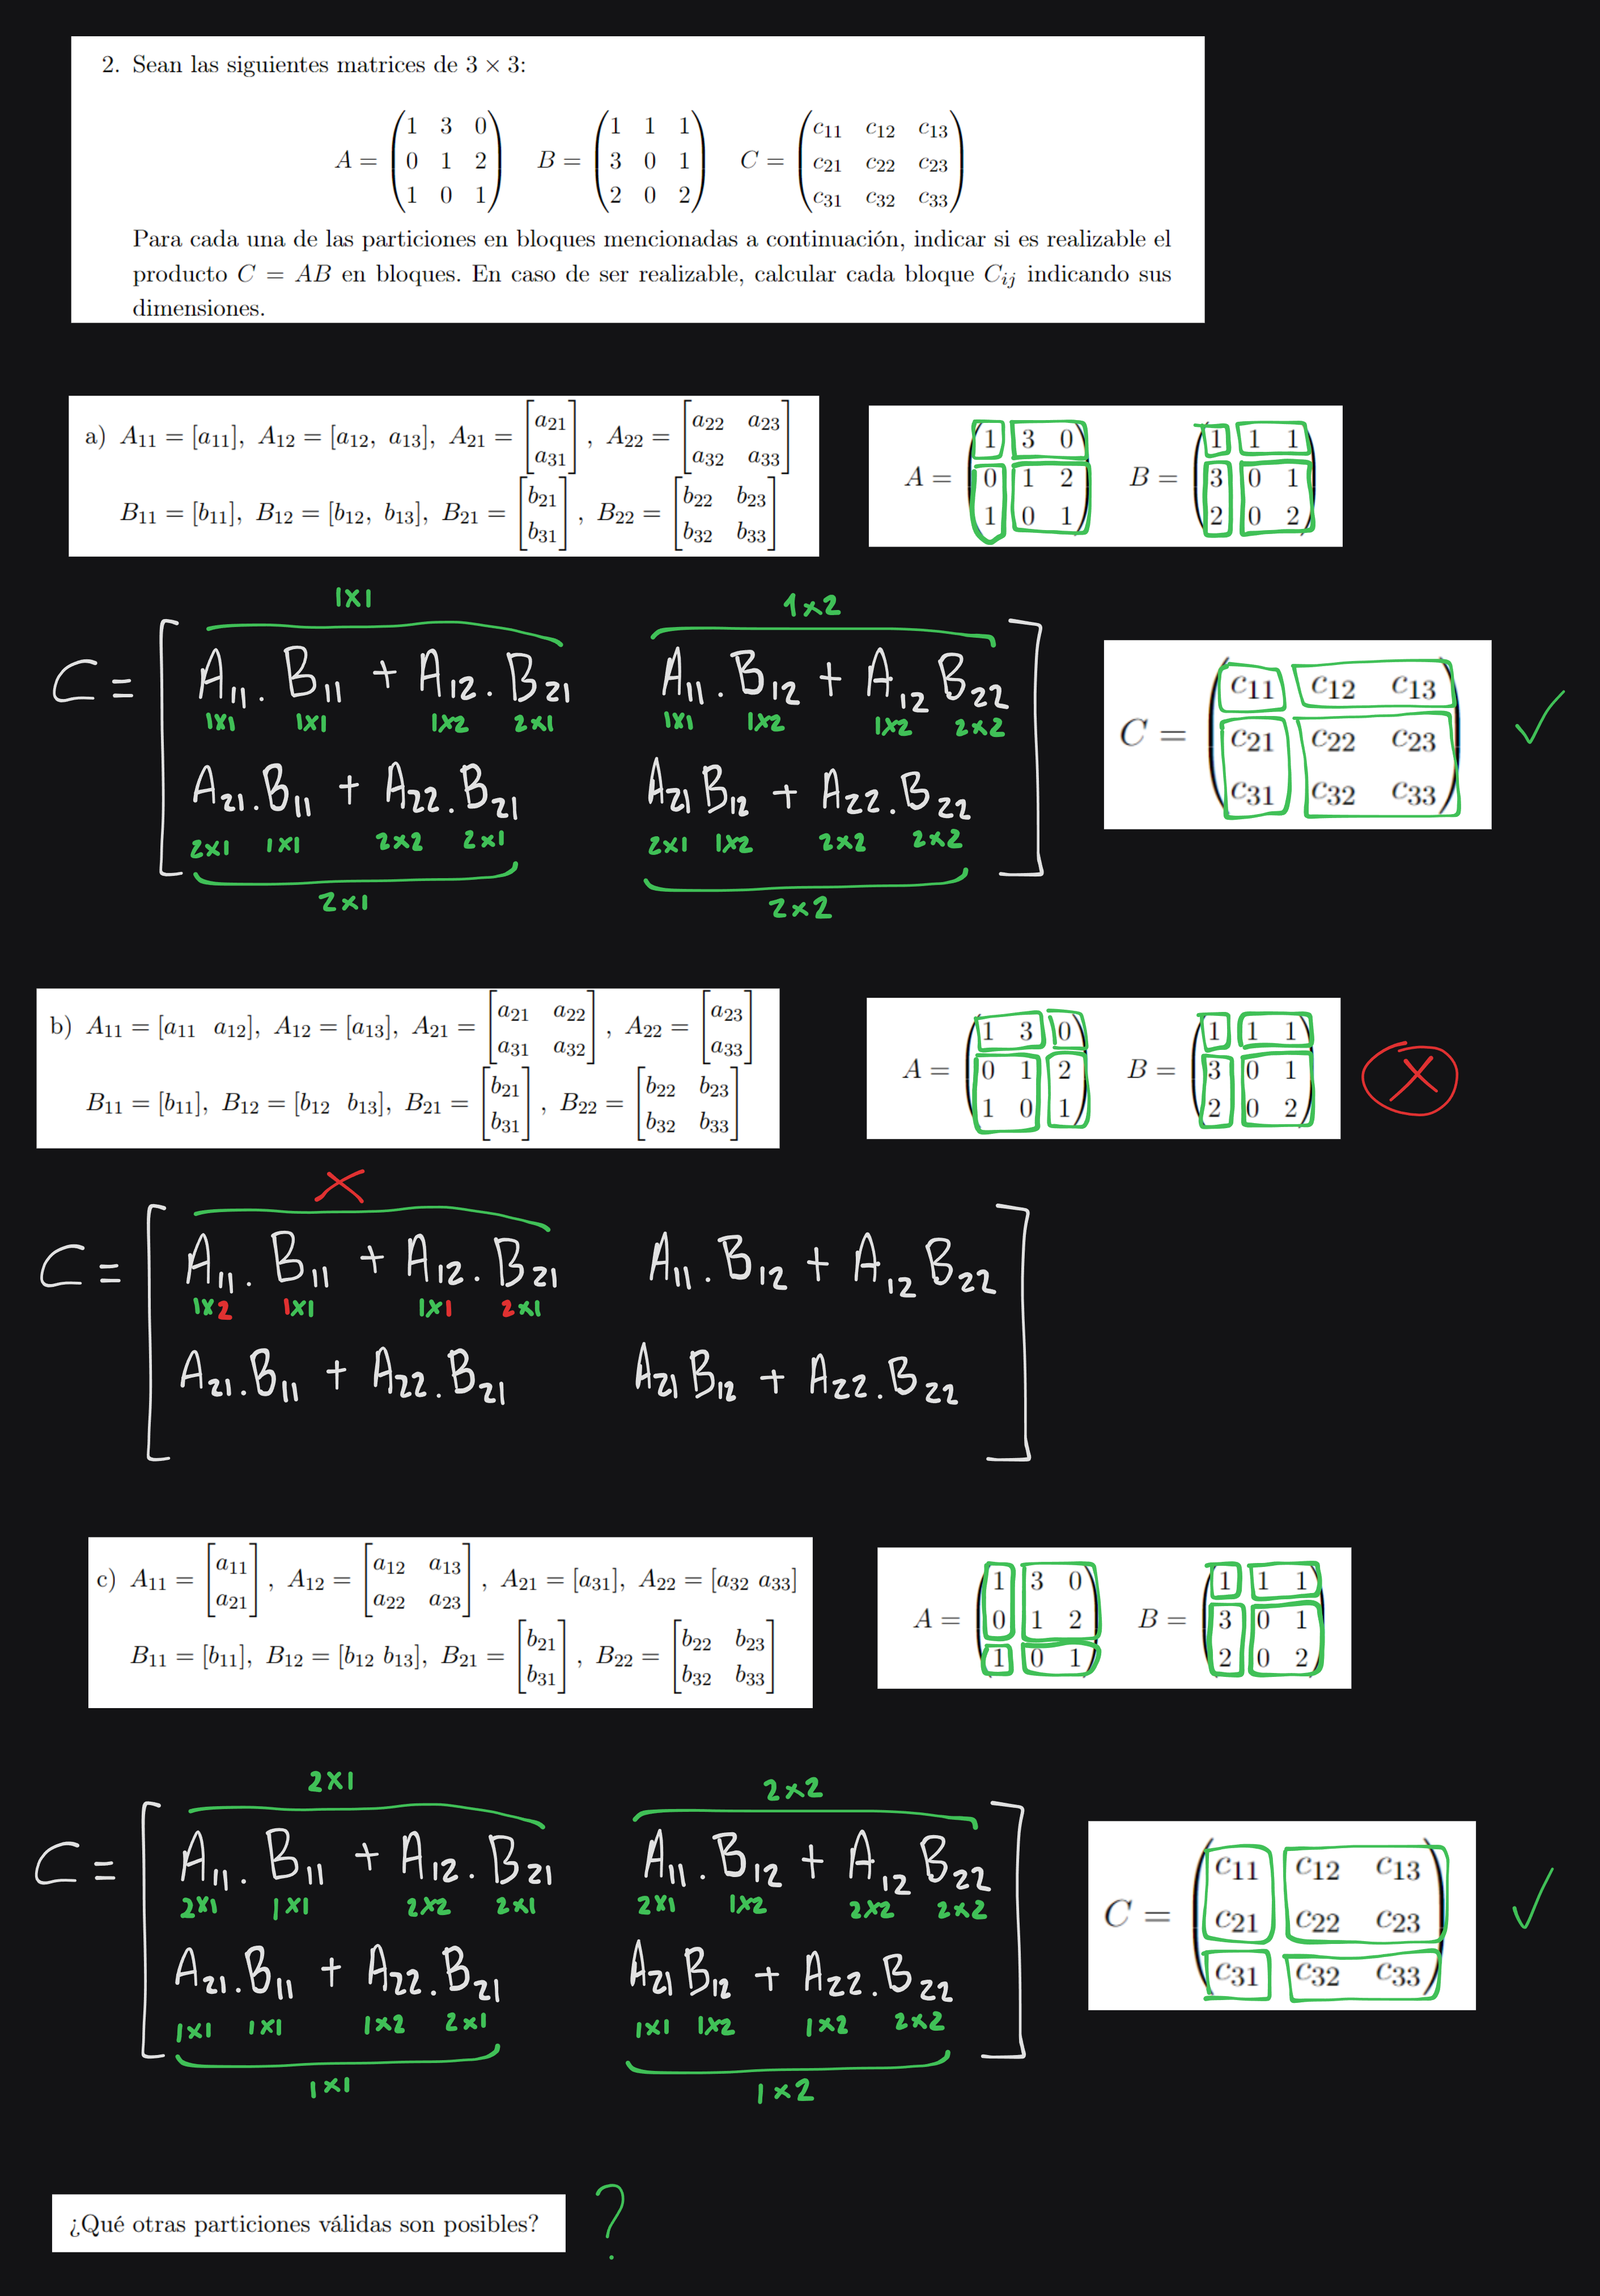 2. Sean las siguientes matrices de 3 × 3:
A = (1 3 0
0 1 2
1 0 1) B = (1 1 1
3 0 1
2 0 2) C = (c11 c12 c13
c21 c22 c23
c31 c32 c33)
Para cada una de las particiones en bloques mencionadas a continuación, indicar si es realizable el
producto C = AB en bloques. En caso de ser realizable, calcular cada bloque Cij indicando sus
dimensiones.
a) A11 = [a11], A12 = [a12, a13], A21 = [a21
a31], A22 = [a22 a23
a32 a33]
B11 = [b11], B12 = [b12, b13], B21 = [b21
b31], B22 = [b22 b23
b32 b33]
A = (1 3 0
0 1 2
1 0 1) B = (1 1 1
3 0 1
2 0 2)
1x1 1x2
C = [A11. B11 + A12. B21 A11. B12 + A12 B22
1x1 1x1 1x2 2x1 1x1 1x2 1x2 2x2
A21. B11 + A22. B21 A21 B12 + A22. B22]
2x1 1x1 2x2 2x1 2x1 1x2 2x2 2x2
2x1 2x2
C = (c11 c12 c13
c21 c22 c23
c31 c32 c33) ✓
b) A11 = [a11 a12], A12 = [a13], A21 = [a21 a22
a31 a32], A22 = [a23
a33]
B11 = [b11], B12 = [b12 b13], B21 = [b21
b31], B22 = [b22 b23
b32 b33]
A = (1 3 0
0 1 2
1 0 1) B = (1 1 1
3 0 1
2 0 2) X
X
C = [A11. B11 + A12. B21 A11. B12 + A12 B22
1x2 1x1 1x1 2x1
A21. B11 + A22. B21 A21 B12 + A22. B22]
c) A11 = [a11
a21], A12 = [a12 a13
a22 a23], A21 = [a31], A22 = [a32 a33]
B11 = [b11], B12 = [b12 b13], B21 = [b21
b31], B22 = [b22 b23
b32 b33]
A = (1 3 0
0 1 2
1 0 1) B = (1 1 1
3 0 1
2 0 2)
2x1 2x2
C = [A11. B11 + A12. B21 A11. B12 + A12 B22
2x1 1x1 2x2 2x1 2x1 1x2 2x2 2x2
A21. B11 + A22. B21 A21 B12 + A22. B22]
1x1 1x1 1x2 2x1 1x1 1x2 1x2 2x2
1x1 1x2
C = (c11 c12 c13
c21 c22 c23
c31 c32 c33) ✓
¿Qué otras particiones válidas son posibles? ?